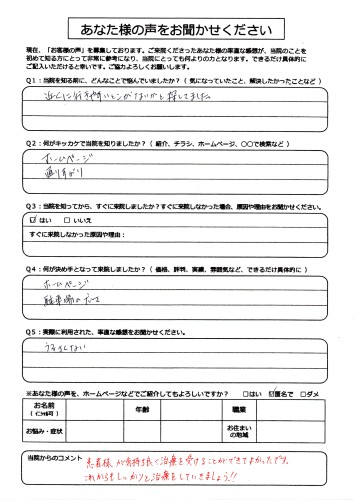 あなた様の声をお聞かせください
現在、「お客様の声」を募集しております。ご来院くださったあなた様の率直な感想が、当院のことを
初めて知る方にとって非常に参考になり、当院にとっても何よりの力となります。できるだけ具体的に
ご記入いただけると幸いです。ご協力よろしくお願いします。
Q1：当院を知る前に、どんなことで悩んでいましたか？（気になっていたこと、解決したかったことなど）
近くに行きやすいところがないかと探してました
Q2：何がキッカケで当院を知りましたか？（紹介、チラシ、ホームページ、〇〇で検索など）
ホームページ
通りすがり
Q3：当院を知ってから、すぐに来院しましたか？すぐに来院しなかった場合、原因や理由をお聞かせください。
☑はい　□いいえ
すぐに来院しなかった原因や理由：
Q4：何が決め手となって来院しましたか？（価格、評判、実績、雰囲気など、できるだけ具体的に）
ホームページ
駐車場の
Q5：実際に利用された、率直な感想をお聞かせください。
※あなた様の声を、ホームページなどでご紹介してもよろしいですか？　□はい　☑匿名で　□ダメ
お名前
（イニシャル可）
年齢
職業
お悩み・症状
お住まい
の地域
当院からのコメント
患者様が気持ち良く治療を受けることができてよかったです。
これからもしっかりと治療をしていきましょう!!